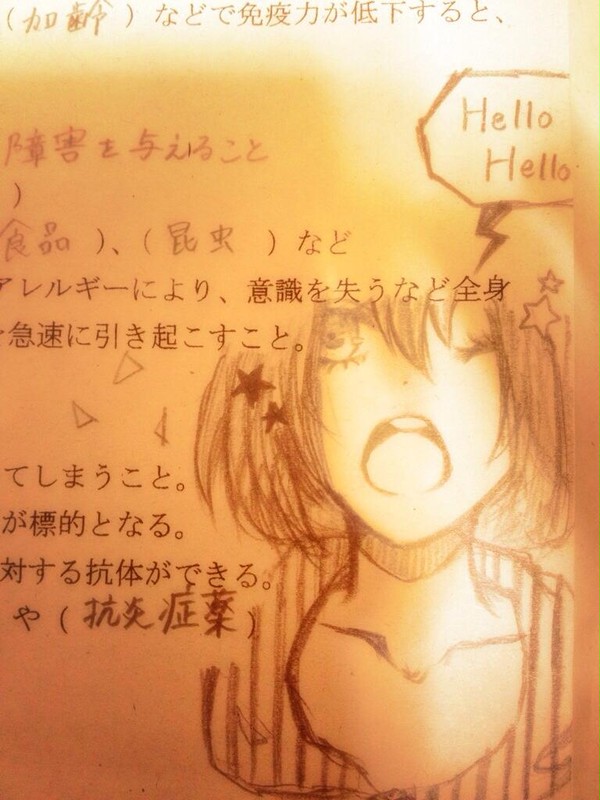 （加齢）などで免疫力が低下すると、
Hello
Hello
障害を与えること
）
食品）、（昆虫）など
アレルギーにより、意識を失うなど全身
急速に引き起こすこと。
てしまうこと。
が標的となる。
対する抗体ができる。
や（抗炎症薬）